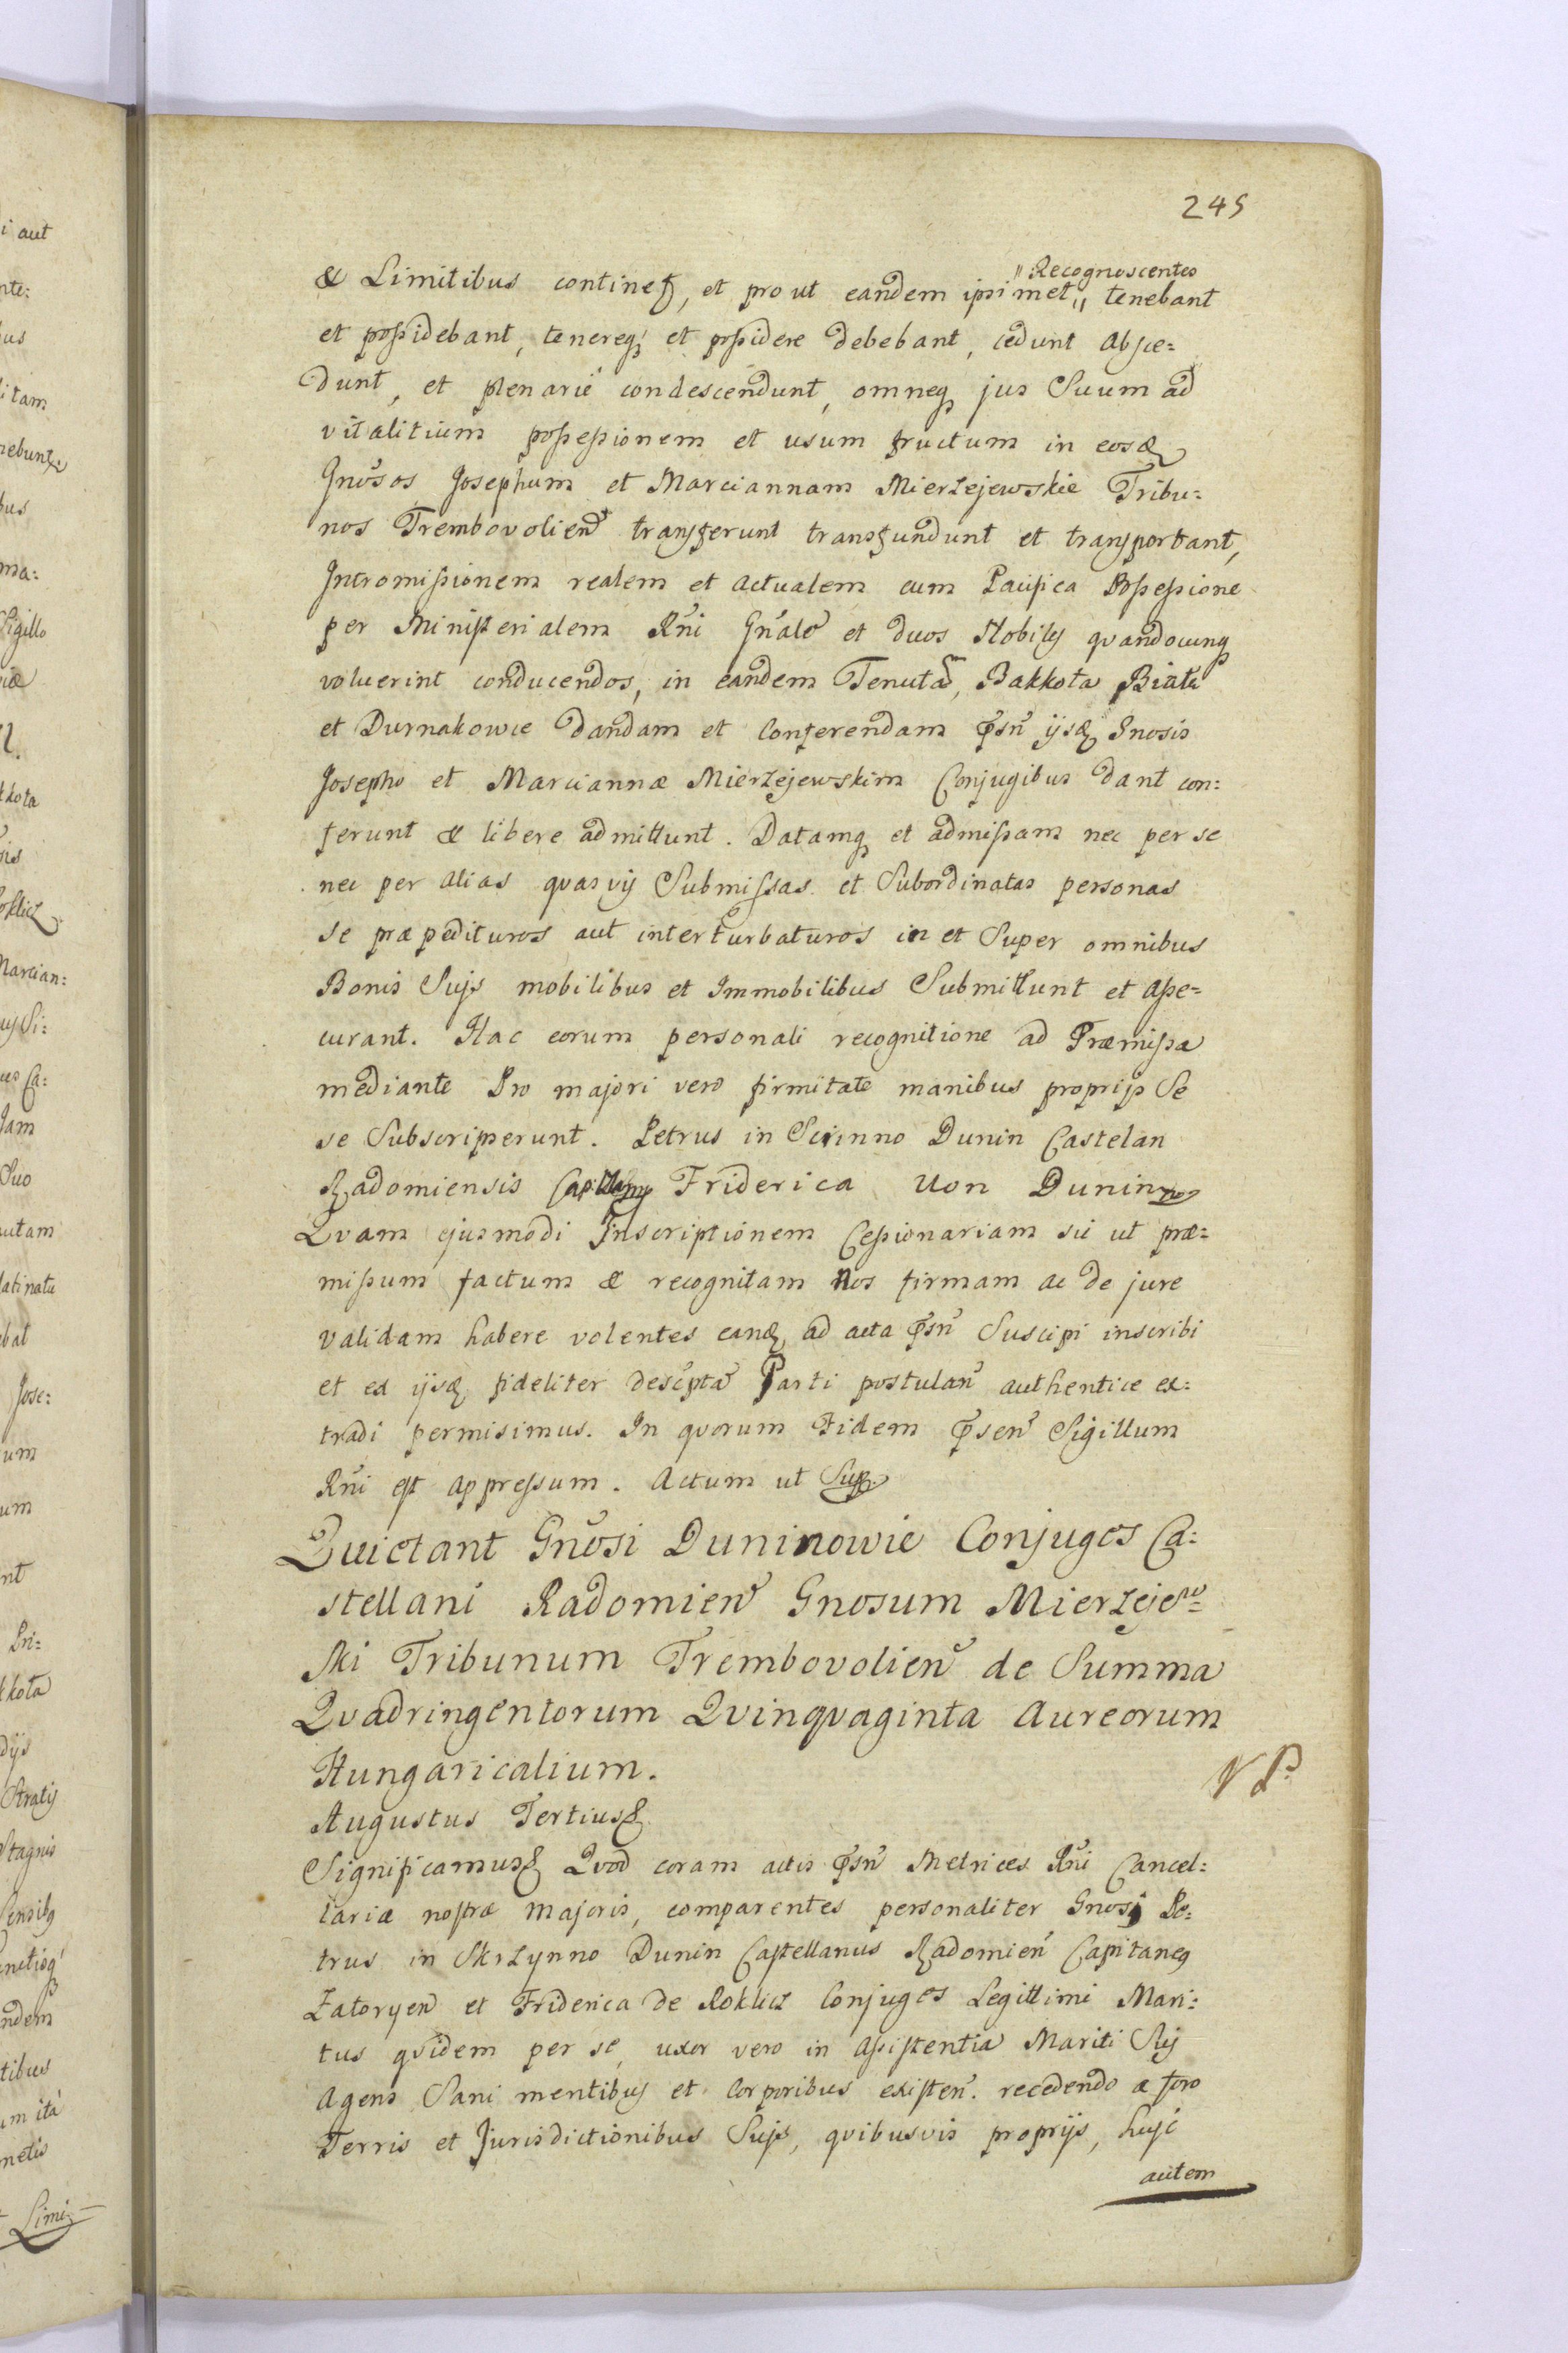 245
& Limitibus continet, et pro ut eandem ipsimet "Recognoscentes" tenebant
et possidebant, tenereq; et possidere debebant, cedunt absce=
dunt, et plenarie condescendunt, omneq; jus Suum ad
vitalitium possessionem et usum fructum in eosd
Gnosos Josephum et Marciannam Mierzejewskie Tribu=
nos Trembovolien transferunt transfundunt et transportant,
Intromissionem realem et actualem cum Pacifica Possessione
per Ministerialem Rni Gnale et duos Nobiles quandocunq;
voluerint conducendos, in eandem Tenutam, Bakkota Biate
et Durnakowce dandam et conferendam psn ijsd Gnosis
Josepho et Marciannæ Mierzejewskim Conjugibus dant con:
ferunt & libere admittunt. Datamq; et admissam nec per se
nec per alias quasvis Submissas et Subordinatas personas
se præpedituros aut interturbaturos in et Super omnibus
Bonis Suis mobilibus et Immobilibus Submittunt et asse=
curant. Hac eorum personali recognitione ad Præmissa
mediante Pro majori vero firmitate manibus proprijs Se
se Subscripserunt. Petrus in Scrinno Dunin Castelan
Radomiensis Friderica Von Dunin
Qvam ejusmodi Inscriptionem Cessionariam sic ut præ=
missum factum & recognitam Nos firmam ac de jure
validam habere volentes eand ad acta psn Suscipi inscribi
et ex ijsd fideliter descripta Parti postulan authentice ex=
tradi permisimus. In quorum Fidem psen Sigillum
Rni est appressum. Actum ut Sup.
Quietant Gnosi Duninowie Conjuges Ca:
stellani Radomien Gnosum Mierzejew=
ski Tribunum Trembovolien de Summa
Qvadringentorum Qvinqvaginta Aureorum
Hungaricalium.
Augustus Tertius &
Significamus & Qvod coram actis psn Metrices Rni Cancel=
lariæ nostræ majoris, comparentes personaliter Gnosi Pe:
trus in Skrzynno Dunin Castellanus Radomien Capitaneg
Zatoryen et Friderica de Roklicz Conjuges Legittimi Mari=
tus qvidem per se, uxor vero in assistentia Mariti Sui
Agens Sani mentibus et corporibus existen. recedendo a foro
Terris et Jurisdictionibus Suis, qvibusvis proprijs, huic
autem